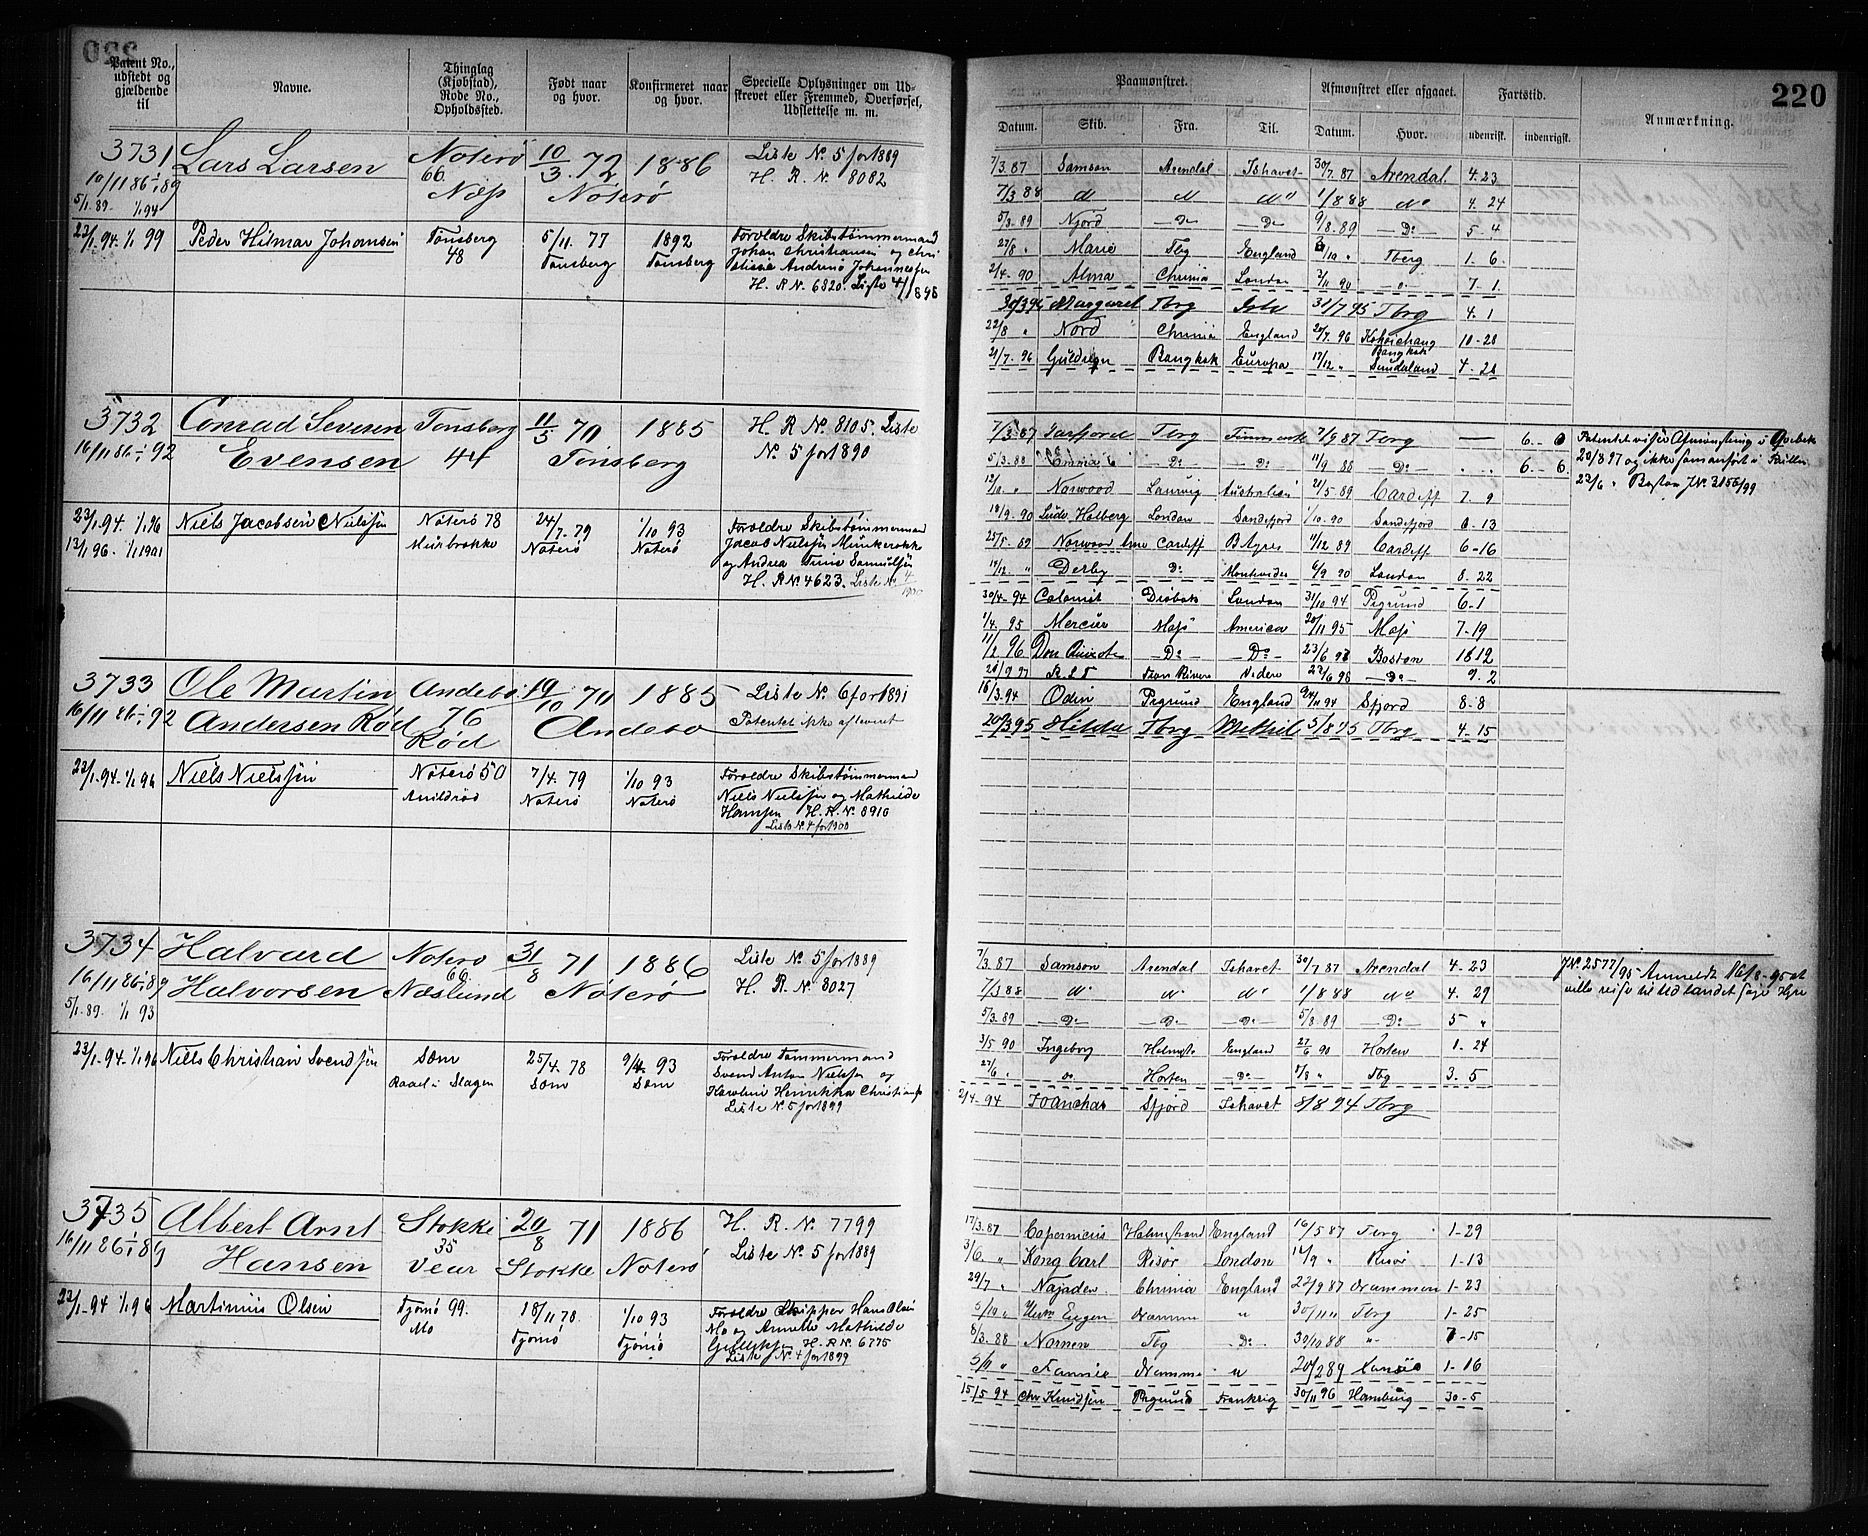 220
Patent No., udstedt og gjældende til
Navne.
Thinglag (Kjøbstad), Rode No., Opholdssted.
Født naar og hvor.
Konfirmeret naar og hvor.
Specielle Oplysninger om Udskrevet eller Fremmed, Overførsel, Udslettelse m. m.
3731 Lars Larsen Noterø 10/3 72 1886 Liste No. 5 for 1889
10/11 86 1/1 89 66 H. R. No. 8082
5/1 89 1/1 94 Næs Nøterø
22/1 94 1/1 99 Peder Hilmar Johansen Tønsberg 5/11 77 1892 Forældre Skibstømmermand
48 Tønsberg Tønsberg Johan Christiansen og
Andrine Johannesen
H. R. No. 6820. Liste 4/1898
3732 Conrad Severin Tønsberg 11/3 70 1885 H. R. No. 8105. Liste
16/11 86 1/1 92 Evensen 44 Tønsberg No. 5 for 1890
23/1 94 1/1 96 Niels Jacobsen Nielsen Nøterø 78 24/7 79 1/10 93 Forældre Skibstømmermand
13/1 96 1/1 1901 Nøterø Nøterø Jacob Nielsen
og Andrea
H. R. No. 4623. Liste No. 4
3733 Ole Martin Andebo 19/10 70 1885 Liste No. 6 for 1891
16/11 86 1/1 92 Andersen Rød 76 Andebo Patentet ikke afleveret
Rød
22/1 94 1/1 96 Niels Nielsen Nøterø 50 7/4 79 1/10 93 Forældre Skibstømmermand
Nøterø Nøterø Niels Nielsen og Mathilde
Hansen H. R. No. 8910
Liste No. 4 for 1900
3734 Halvard Noterø 31/8 71 1886 Liste No. 5 for 1889
16/11 86 1/1 89 Halvorsen 66 Næslund Nøterø H. R. No. 8027
5/1 89 1/1 93
23/1 94 1/1 96 Niels Christian Svendsen Sæm 25/4 78 9/4 93 Forældre Tømmermand
Raael i Slagen Sæm Sæm Svend Anton Nielsen og
Karoline Henrikka
Liste No. 5 for 1899
3735 Albert Arnt Stokke 20/8 71 1886 H. R. No. 7799
16/11 86 1/1 89 Hansen 35 Liste No. 5 for 1889
Vear Stokke Noterø
22/1 94 1/1 96 Martinius Olsen Tjømø 99. 18/11 78 1/10 93 Forældre Skipper Hans Olsen
Mo Tjømø Tjømø Mo og Annette Mathilde
H. R. No. 6775
Liste No. 4 for 1899
Paamønstret.
Afmønstret eller afgaaet.
Fartstid.
Anmærkning.
220
Datum. Skib. Fra. Til. Datum. Hvor. udenrigst. indenrigst.
7/3 87 Samson Arendal Ishavet 30/7 87 Arendal 4. 23
7/3 88 do do do 1/8 88 do 4. 24
5/3 89 Njord Do Do 9/8 89 Do 5-4
27/8 " Marie Tbg England 3/10 " Tberg 1. 6.
2/4 90 Alma Chrnia London 2/11 90 7. 1.
30/3 95 Margaret Tbrg 31/7 95 Tbrg 4. 1
22/8 " Nord Chrnia England 20/7 96 10-28
Bangkok
21/7 96 Guldregn Bangkok Europa 17/12 " Sundaland 4-26
7/3 87 Tbrg 7/9 87 Tbrg — 6. 0 Patentet viser Afmønstring i Qvebek
5/3 88 Do Do 11/9 88 Do 6. 6. 20/8 97 og ikke som anført i Rullen
12/10 " Norwood Laurvig Australien 21/5 89 Cardiff 7. 9 23/6 " Boston J.No. 3156/99
18/9 90 Ludv. Holberg London Sandefjord 1/10 90 Sandefjord 6-13
25/5 89 Norwood Cardiff B Ayres 11/12 89 Cardiff 6-16
19/12 " Derby Do Montevideo 6/9 90 London 8. 22
30/4 94 Calomit Drøbak London 31/10 94 Prgrund 6-1
1/4 95 Mercur Moss America 20/11 95 Moss 7-19
11/2 96 Don Quixote Do Do 23/6 98 Boston 18 12
20/9 97 Videre 22/6 98 Do 9. 2
16/3 94 Odin Prgrund England 24/11 94 Sfjord 8-8
20/3 95 Hilda Tbrg Methil 5/8 95 Tbrg 4-15
7/3 87 Samson Arendal Ishavet 30/7 87 Arendal 4-23 J.No. 2577/95 Anmeldt 16/8 95 at
7/3 88 do do do 1/8 88 do 4. 29 ville reise til Udlandet
5/3 89 Do Do Do 5/8 89 Do 5 "
3/5 90 Ingeborg England 27/6 90 Horten 1-24
27/6 " do Horten Do 1/8 " Tbg 3. 5
2/4 94 Sfjord Ishavet 8/8 94 Tbrg
17/3 87 Copernicus Holmstrand England 16/5 87 Tbrg 1-29
3/6 " Kong Carl Risør London 14/9 " Risør 1-13
29/7 " Najaden Chrnia England 22/9 87 Drammen 1-23
5/10 " Eugen Dramme " 30/11 " Tbrg 1-25
8/3 88 Nornen Tbg Do 30/10 88 " 7-15
5/11 " Fannie Dramm " 20/2 89 1-16
15/5 94 Chr Knudsen Prgrund Frankrig 30/11 96 Hamburg 30-5